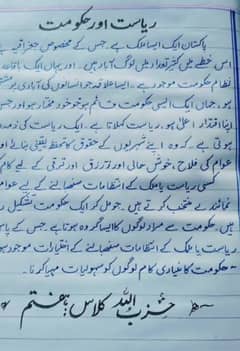 ریاست اور حکومت
پاکستان ایک ایسا ملک ہے جس کے مخصوص جغرافیے
اس خطے میں کثیر تعداد میں لوگ آباد ہیں۔ اور یہاں ایک باقاعدہ
نظام حکومت موجود ہے۔ ایسا علاقہ جو انسانوں کی آبادی پر مشتمل
ہو، جہاں ایک ایسی حکومت قائم ہو جو خود مختار ہو اور جس
اپنا اقتدار اعلیٰ ہو، ریاست کہلاتا ہے۔ ایک ریاست کی ذمہ داری
ہوتی ہے کہ وہ اپنے شہریوں کے حقوق کا تحفظ یقینی بنائے اور
عوام کی فلاح، خوش حالی اور ترقی کے لیے کام
کسی ریاست یا ملک کے انتظامات سنبھالنے کے لیے عوام
نمائندے منتخب کرتے ہیں۔ جو مل کر ایک حکومت تشکیل
ہیں۔ حکومت سے مراد لوگوں کا ایسا گروہ ہوتا ہے جس کے پاس
ریاست یا ملک کے انتظامات سنبھالنے کے اختیارات موجود ہوں
۔ حکومت کا بنیادی کام لوگوں کو سہولیات مہیا کرنا۔
حزب اللہ کلاس ہفتم